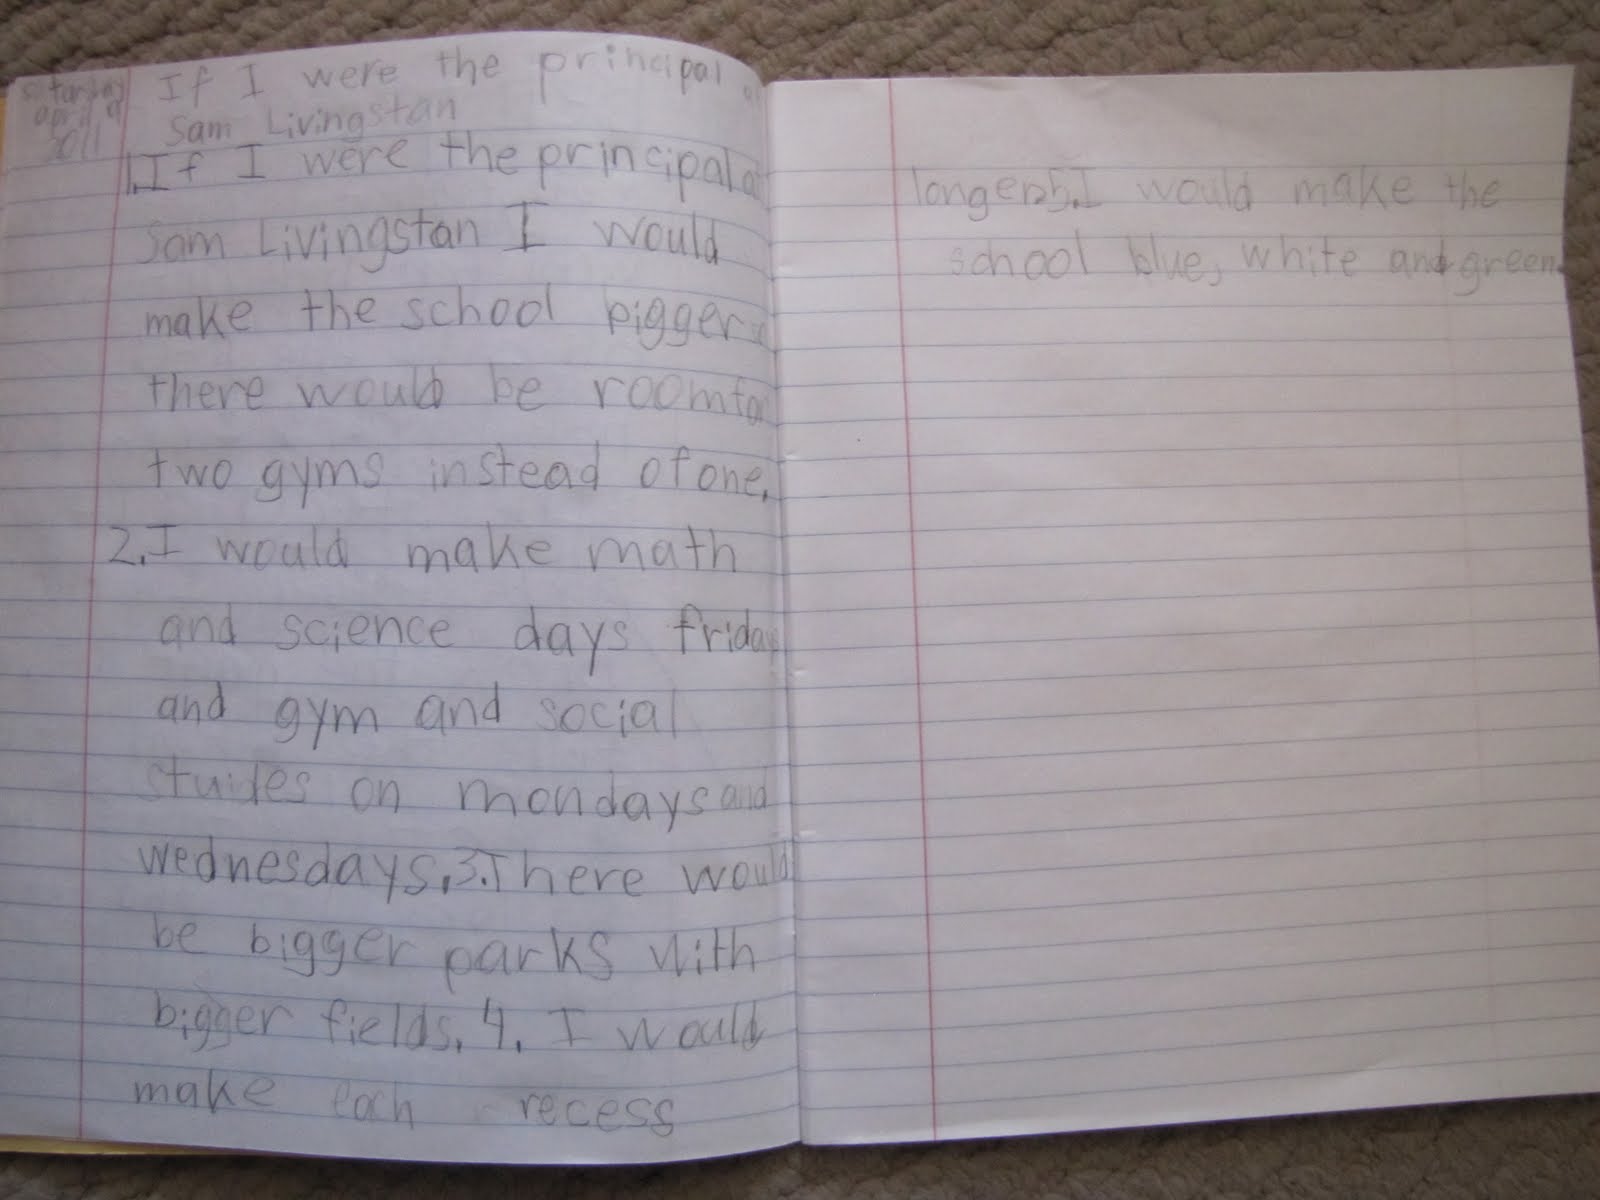 Saturday
april 9
2011
If I were the principal at
Sam Livingstan
1.If I were the principal at
Sam Livingstan I would
make the school bigger
there would be room for
two gyms instead of one.
2.I would make math
and science days friday
and gym and social
stuides on mondays and
wednesdays.3.There would
be bigger parks with
bigger fields. 4. I would
make each recess
longer.5.I would make the
school blue, white and green.